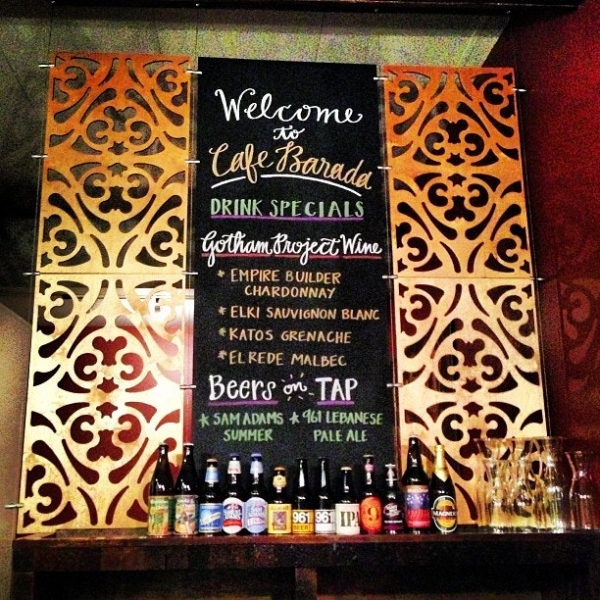 Welcome
to
Cafe Barada
DRINK SPECIALS
Gotham Project Wine
* EMPIRE BUILDER
CHARDONNAY
* ELKI SAUVIGNON BLANC
* KATOS GRENACHE
* EL REDE MALBEC
Beers on TAP
* SAM ADAMS
SUMMER
* 961 LEBANESE
PALE ALE
961
961
IPA
9